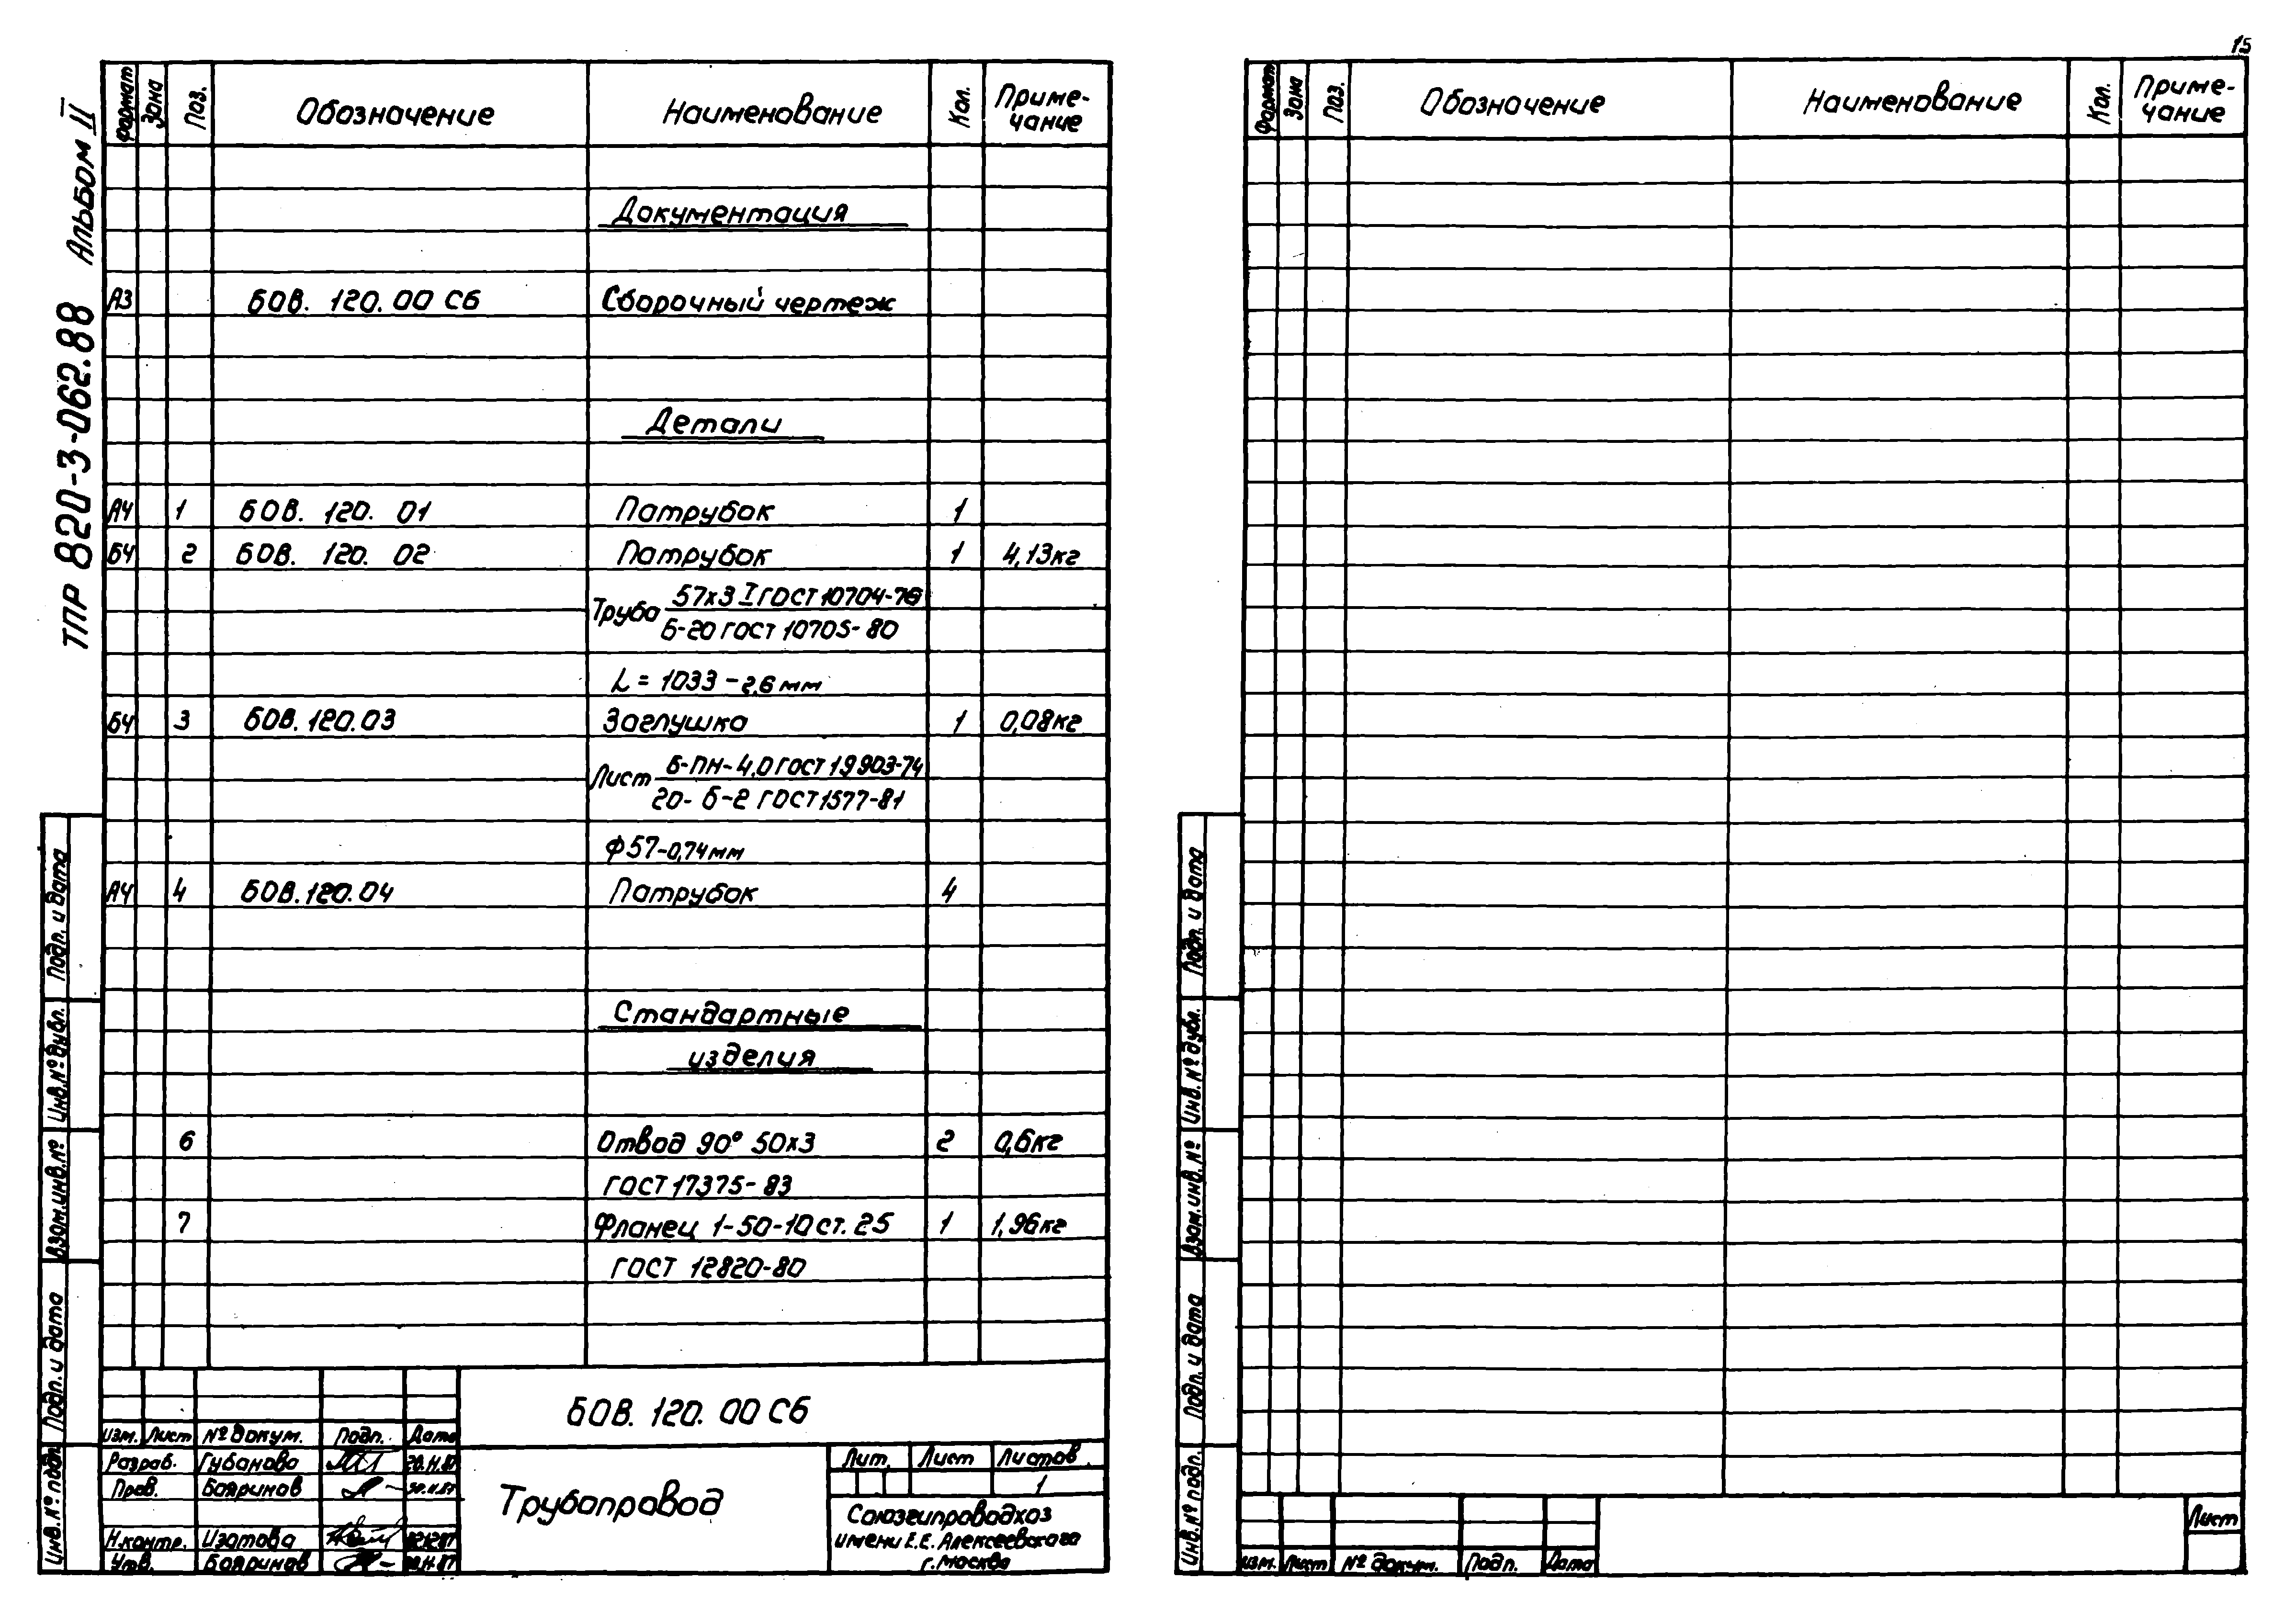 15
ТПР 820-3-062.88 Альбом II
Формат Зона Поз. Обозначение Наименование Кол. Приме-
чание
Документация
А3 БОВ. 120. 00 СБ Сборочный чертеж
Детали
А4 1 БОВ. 120. 01 Патрубок 1
БЧ 2 БОВ. 120. 02 Патрубок 1 4,13кг
57х3 I ГОСТ 10704-76
Труба
Б-20 ГОСТ 10705-80
L = 1033 - 2,6 мм
БЧ 3 БОВ. 120. 03 Заглушка 1 0,08кг
Б-ПН-4,0 ГОСТ 19903-74
Лист
20-Б-2 ГОСТ 1577-81
Ф57-0,74мм
А4 4 БОВ. 120. 04 Патрубок 4
Стандартные
изделия
6 Отвод 90° 50х3 2 0,6кг
ГОСТ 17375-83
7 Фланец 1-50-10 ст. 25 1 1,96кг
ГОСТ 12820-80
Подп. и дата
Инв. № дубл.
Взам. инв. №
Подп. и дата
Инв. № подл.
БОВ. 120. 00 СБ
Изм. Лист № докум. Подп. Дата
Разраб. Губанова
Пров. Бояринов
Н.контр. Изотова
Утв. Бояринов
Трубопровод
Лит. Лист Листов
1
Союзгипроводхоз
имени Е.Е. Алексеевского
г. Москва
Формат Зона Поз. Обозначение Наименование Кол. Приме-
чание
Подп. и дата
Инв. № дубл.
Взам. инв. №
Подп. и дата
Инв. № подл.
Лист
Изм. Лист № докум. Подп. Дата